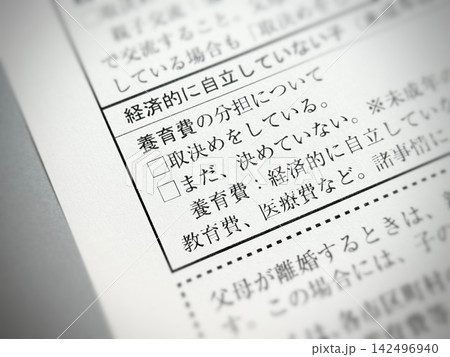 親子交流
で交流すること。
している場合も「取決めを
経済的に自立していない子
養育費の分担について
□取決めをしている。
□まだ、決めていない。※未成年の
養育費：経済的に自立していな
教育費、医療費など。諸事情に
父母が離婚するときは、
す。この場合には、子の
は、各市区町村の
PIXTA
142496940